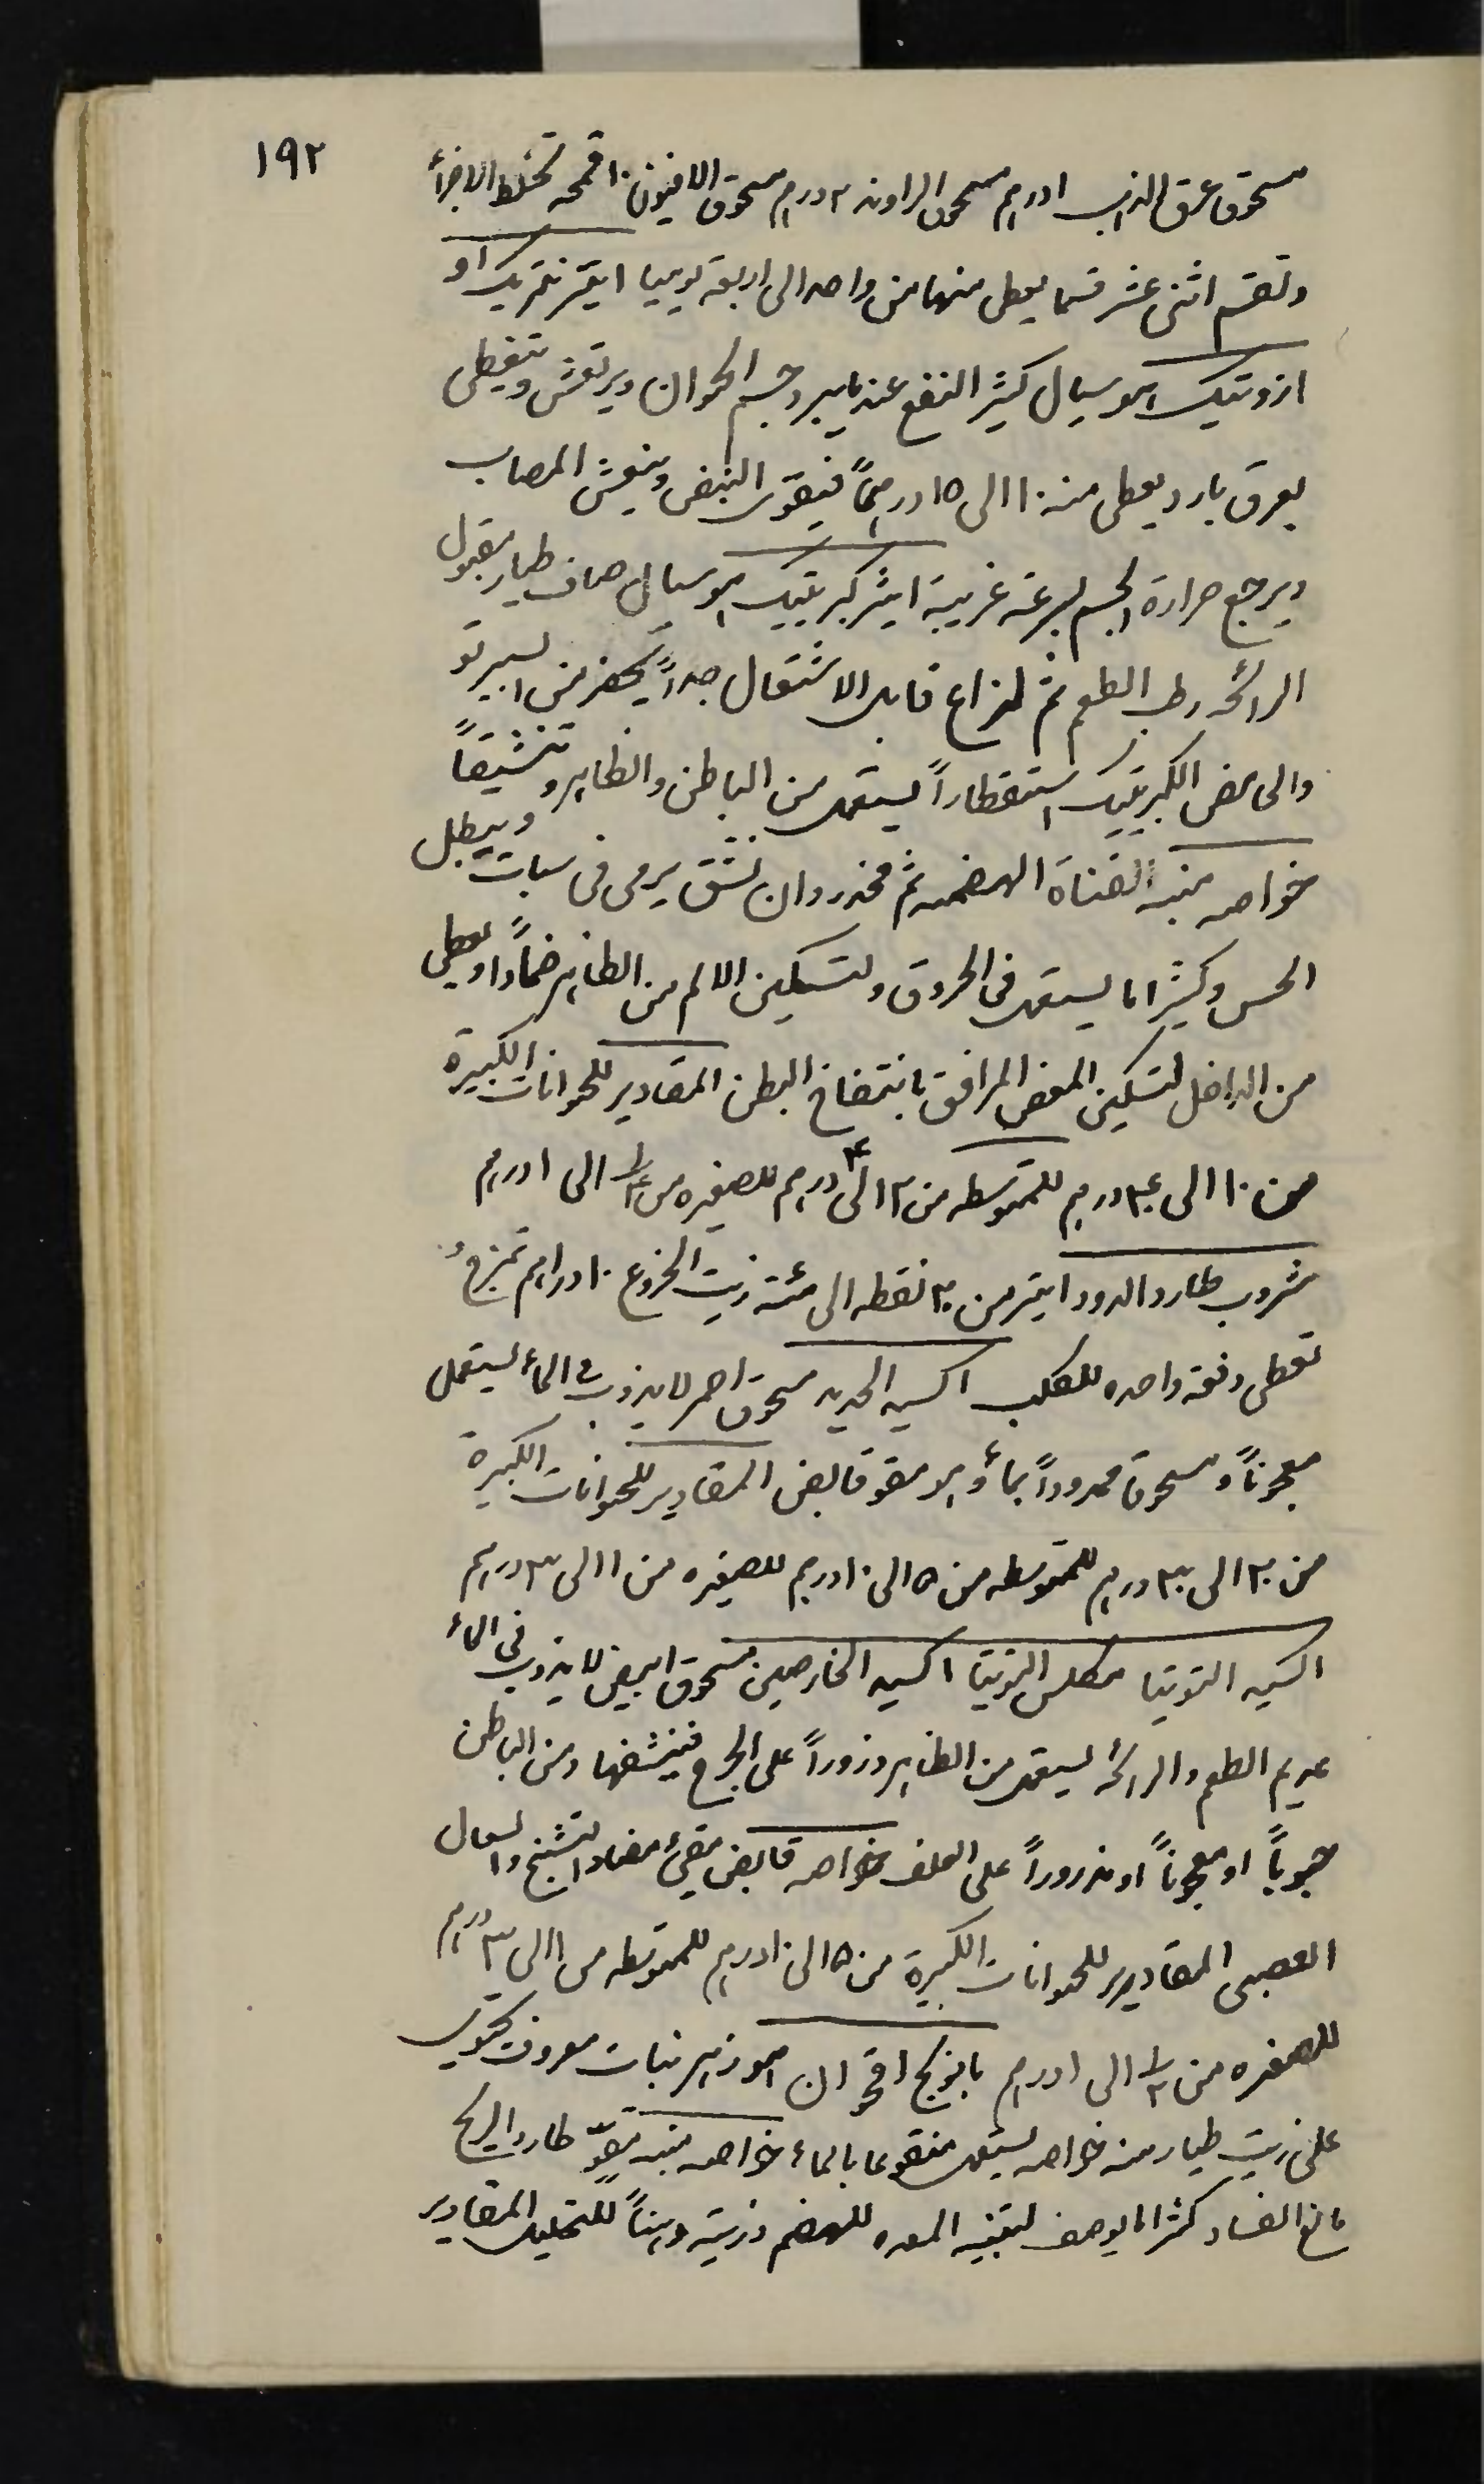 ١٩٢
مسحوق عرق الذهب ١ درهم مسحوق الراوند ٢ درهم مسحوق الافيون ١٠ قمحه تخلط الاجزأ
وتقسم اثنى عشر قسما يعطى منها من واحد الى اربعة يوميا ايتر نتريك او
ازوتيك هو سيال كثير النفع عندما يبرد جسم الحيوان ويرتعش ويتغطى
بعرق بارد يعطى منه ١٠ الى ١٥ درهماً فيقوى النبض وينعش المصاب
ويرجع حرارة الجسم بسرعة غريبة ايثر كبريتيك هو سيال صاف طيار مقبول
الرائحه رطب الطعم ثم لذاع قابل الاشتعال جداً يحضر من اسبيرتو
والى حمض الكبريتيك استقطاراً يستعمل من الباطن والظاهر وتنشيقاً
خواصه منبه القناة الهضميه ثم مخدر وان نشق يرمى فى سبات ويبطل
الحس وكثيرا ما يستعمل فى الحروق ولتسكين الالم من الظاهر ضماداً ويعطى
من الداخل لتسكين المغص المرافق بانتفاخ البطن المقادير للحيوانات الكبيرة
من ١٠ الى ٤٠ درهم للمتوسطه من ٢ الى ٤ درهم للصغيره من ١/٢ الى ١ درهم
مشروب طارد الدود ايتر من ٢٠ نقطه الى مئة زيت الخروع ١٠ دراهم تمزج و
تعطى دفعة واحده للكلب اكسيد الحديد مسحوق احمر لا يذوب في المأ يستعمل
معجوناً ومسحوقا ممدوداً بمأ وهو مقو قابض المقادير للحيوانات الكبيرة
من ٢٠ الى ٣٠ درهم للمتوسطه من ٥ الى ١٠ درهم للصغيره من ١ الى ٣ درهم
اكسيد التوتيا مكلس التوتيا اكسيد الخارصين مسحوق ابيض لا يذوب فى المأ
عديم الطعم والرائحة يستعمل من الظاهر وزروراً على الجرح فينشفها ومن الباطن
حبوباً او معجوناً او مذروراً على العلف خواصه قابض مقيئ مضاد التشنج والسعال
العصبى المقادير للحيوانات الكبيرة من ٥ الى ١٠ درهم للمتوسطه من ١ الى ٣ درهم
للصغيره من ١/٢ الى ١ درهم بابونج اقحوان هو زهر نبات معروف يحتوى
على زيت طيار منه خواصه يستعمل منقوعا بالمأ خواصه منبه مقوّ طارد الريح
مانع الفساد كثيرا ما يوصف لتنبيه المعده للهضم وزيته دهناً للتحليل المقادير